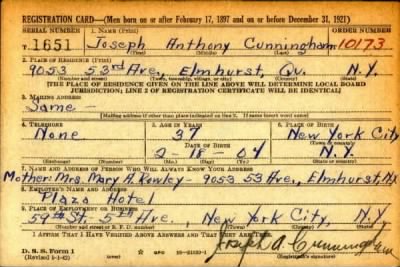 REGISTRATION CARD—(Men born on or after February 17, 1897 and on or before December 31, 1921)
SERIAL NUMBER 1. NAME (Print) ORDER NUMBER
T 1651 Joseph Anthony Cunningham 10173
(First) (Middle) (Last)
2. PLACE OF RESIDENCE (Print)
9053 53rd Ave, Elmhurst, Qu. N.Y.
(Number and street) (Town, township, village, or city) (County) (State)
[THE PLACE OF RESIDENCE GIVEN ON THE LINE ABOVE WILL DETERMINE LOCAL BOARD
JURISDICTION; LINE 2 OF REGISTRATION CERTIFICATE WILL BE IDENTICAL]
3. MAILING ADDRESS
Same -
[Mailing address if other than place indicated on line 2. If same insert word same]
4. TELEPHONE 5. AGE IN YEARS 6. PLACE OF BIRTH
None 37 New York City
DATE OF BIRTH (Town or county)
2-18-04 N.Y.
(Exchange) (Number) (Mo.) (Day) (Yr.) (State or country)
7. NAME AND ADDRESS OF PERSON WHO WILL ALWAYS KNOW YOUR ADDRESS
Mother: Mrs. Mary A. Rowley - 9053 53 Ave., Elmhurst, N.Y.
8. EMPLOYER'S NAME AND ADDRESS
Plaza Hotel
9. PLACE OF EMPLOYMENT OR BUSINESS
59th St - 5th Ave., New York City, N.Y.
(Number and street or R. F. D. number) (Town) (County) (State)
I AFFIRM THAT I HAVE VERIFIED ABOVE ANSWERS AND THAT THEY ARE TRUE.
D. S. S. Form 1 GPO 16-21630-1 Joseph A. Cunningham
(Revised 1-1-42)